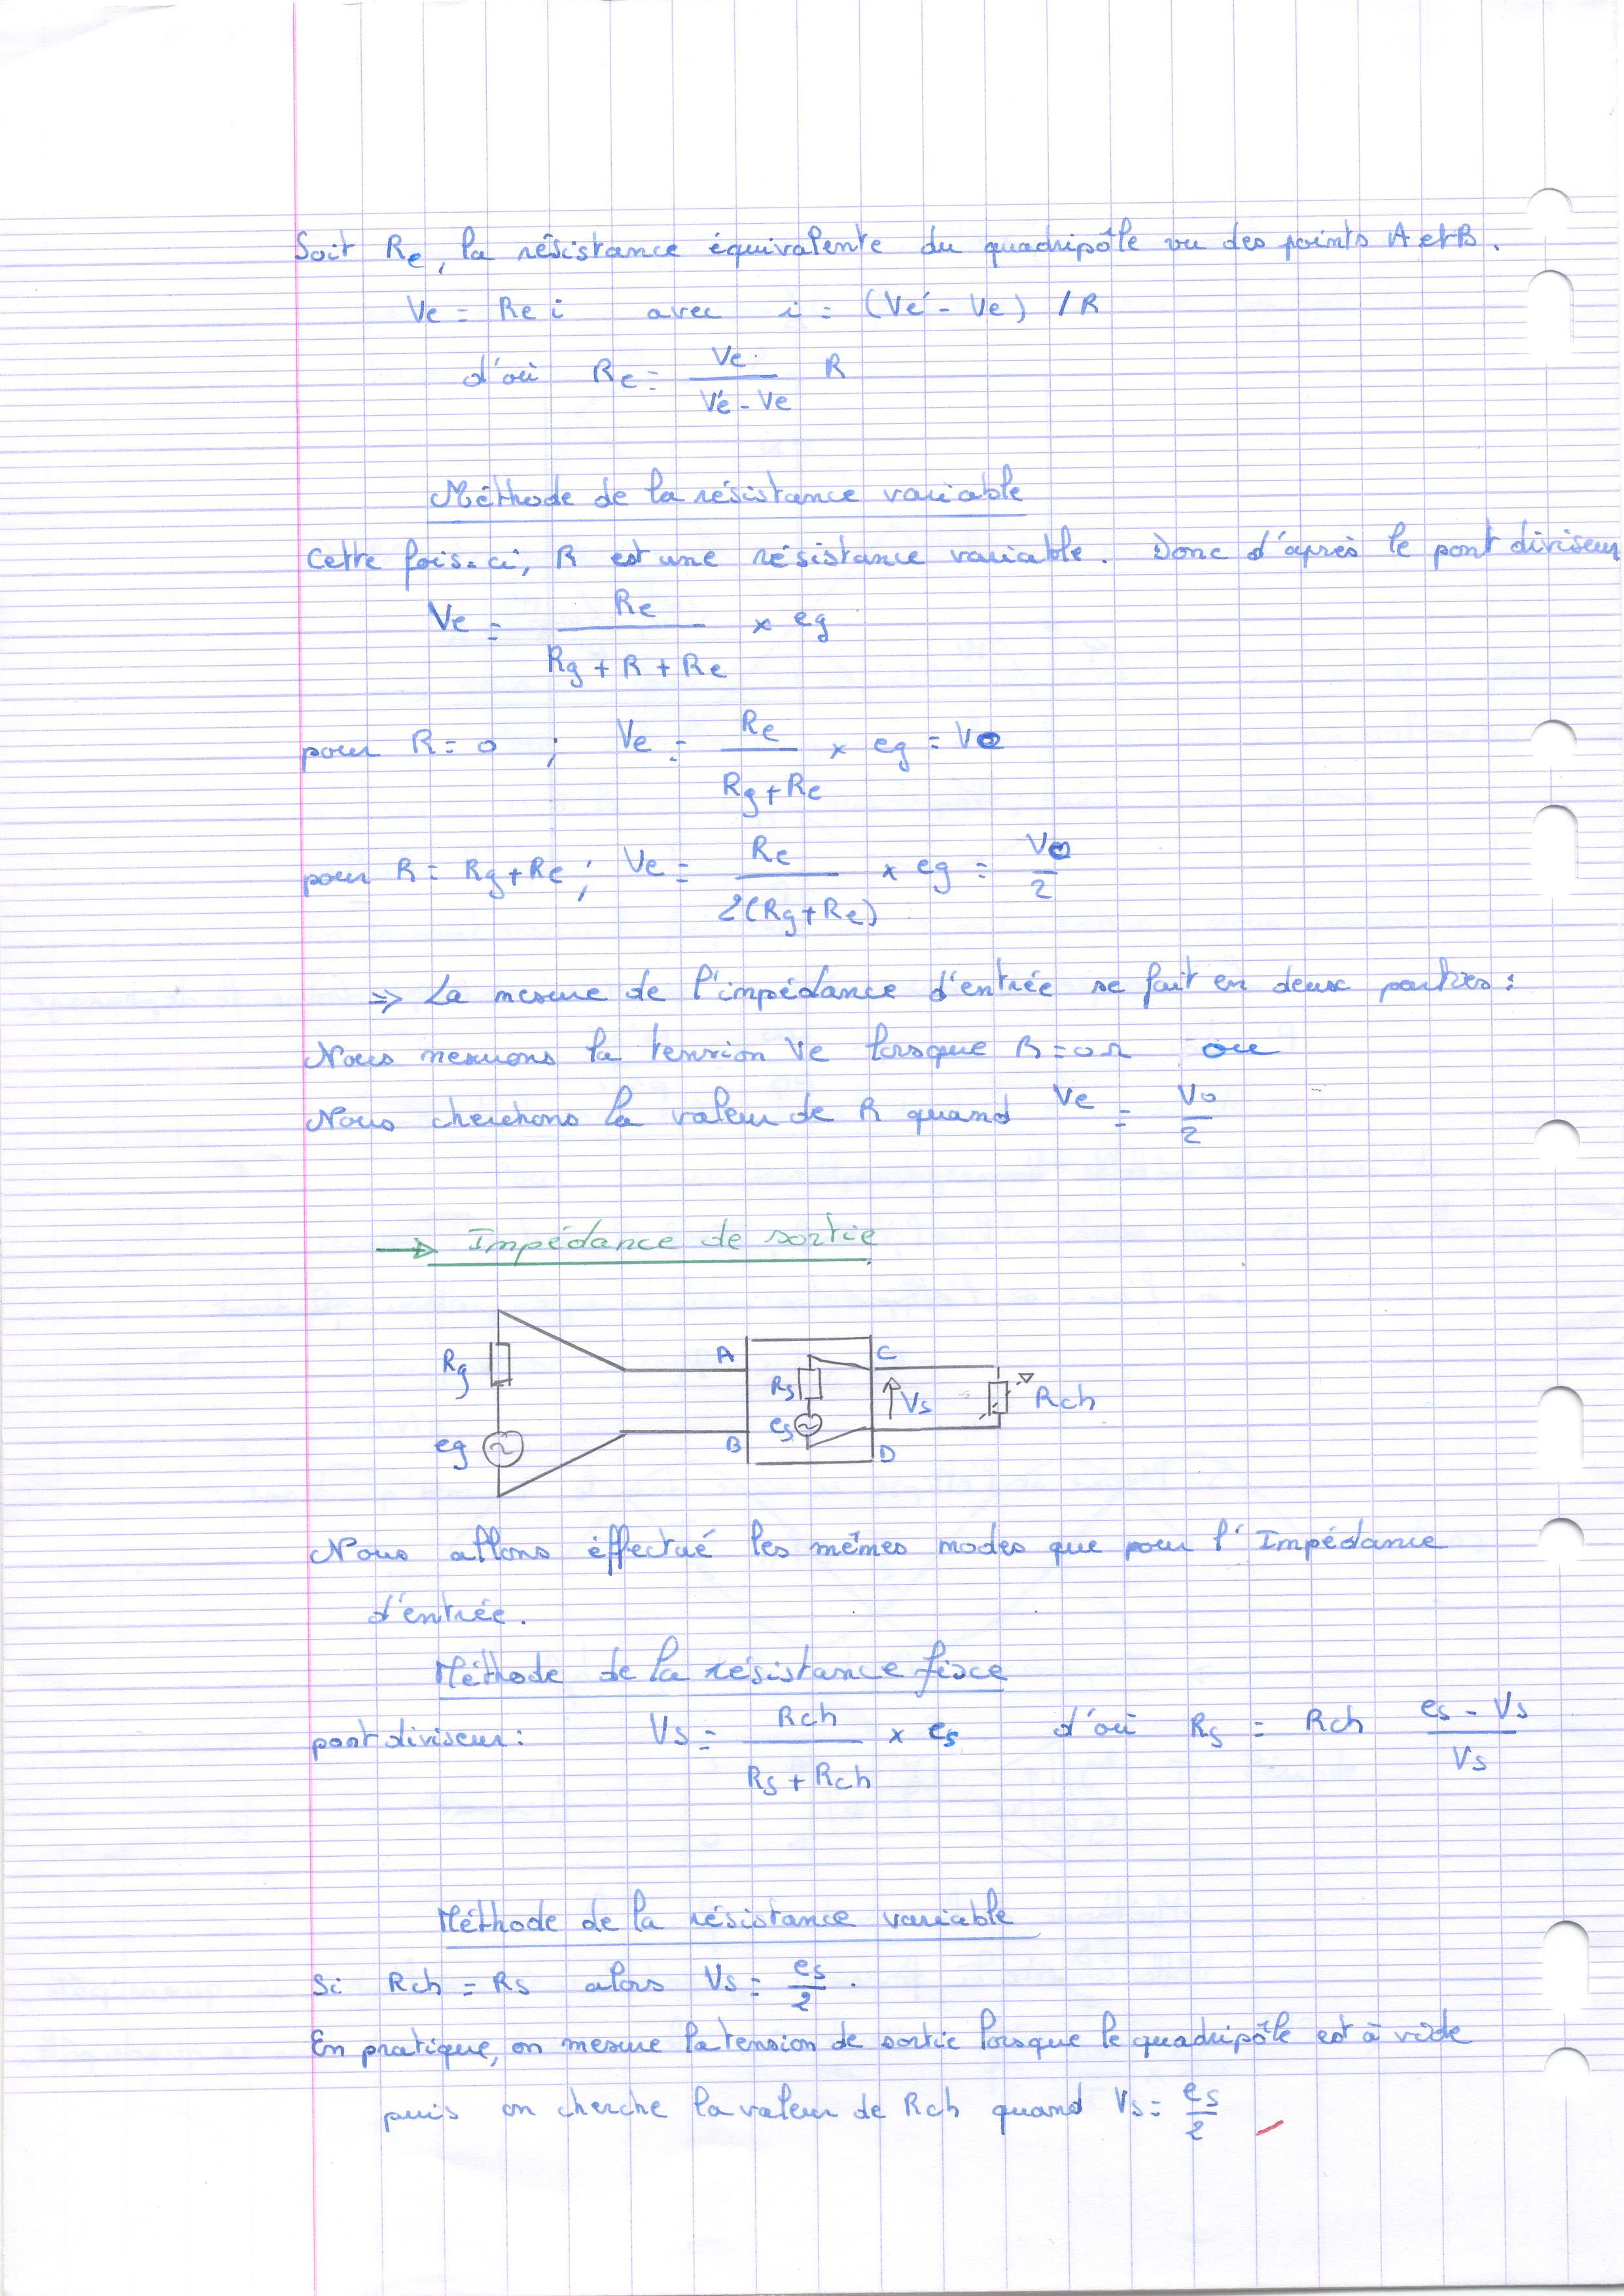 Soit Re, la résistance équivalente du quadripôle vu des points A et B.
Ve = Re i avec i = (Ve' - Ve) / R
d'où Re = Ve / (Ve' - Ve) R
Méthode de la résistance variable
Cette fois-ci, R est une résistance variable. Donc d'après le pont diviseur
Ve = Re / (Rg + R + Re) × eg
pour R = 0 ; Ve = Re / (Rg + Re) × eg = V0
pour R = Rg + Re ; Ve = Re / 2(Rg + Re) × eg = V0 / 2
=> La mesure de l'impédance d'entrée se fait en deux parties :
Nous mesurons la tension Ve lorsque R = 0 Ω ou
Nous cherchons la valeur de R quand Ve = V0 / 2
→ Impédance de sortie
Rg A Rs C Vs Rch
eg B es D
Nous allons éffectué les mêmes modes que pour l'Impédance
d'entrée.
Méthode de la résistance fixe
pont diviseur : Vs = Rch / (Rs + Rch) × es d'où Rs = Rch (es - Vs) / Vs
Méthode de la résistance variable
Si Rch = Rs alors Vs = es / 2 .
En pratique, on mesure la tension de sortie lorsque le quadripôle est à vide
puis on cherche la valeur de Rch quand Vs = es / 2